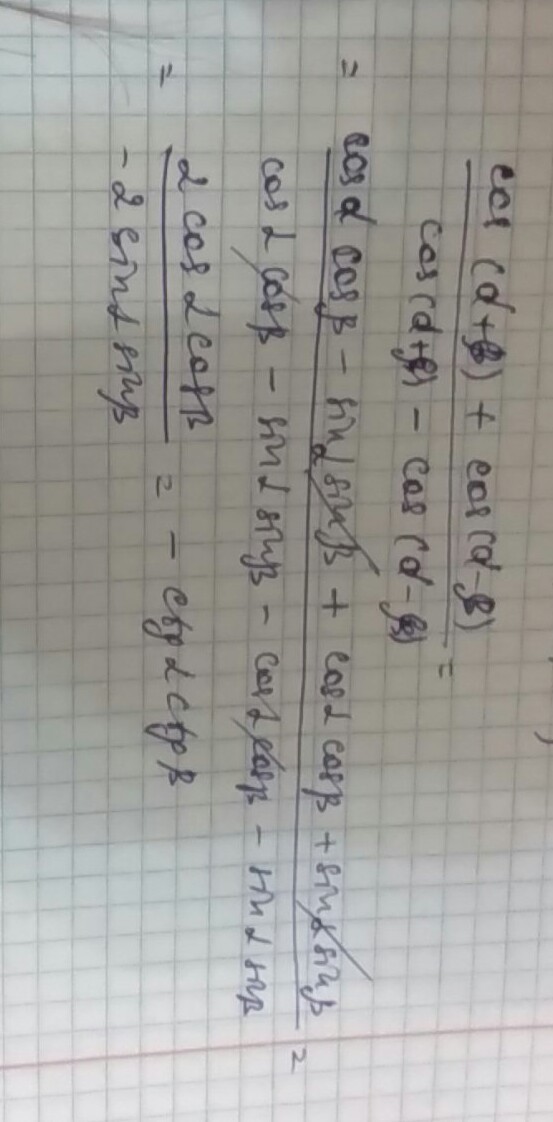 cos (α+β) + cos(α-β)
cos(α+β) - cos(α-β) =
= cosα cosβ - sinα sinβ + cosα cosβ + sinα sinβ
cosα cosβ - sinα sinβ - cosα cosβ - sinα sinβ =
= 2 cosα cosβ
-2 sinα sinβ = - ctgα ctgβ